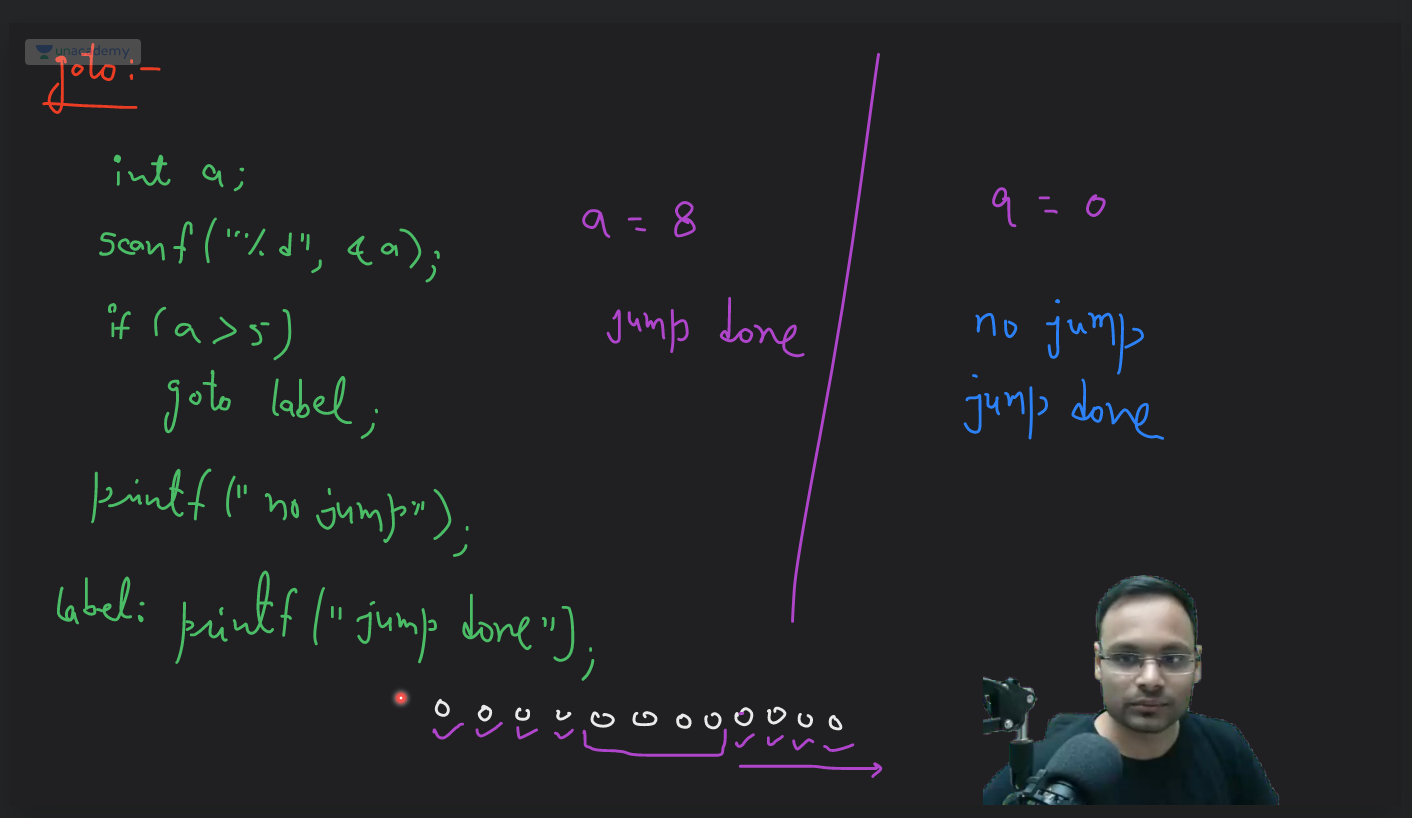 unacademy
goto :-
int a;
scanf("%d", &a);
if (a > 5)
goto label;
printf("no jump");
label: printf("jump done");
a = 8
jump done
a = 0
no jump
jump done